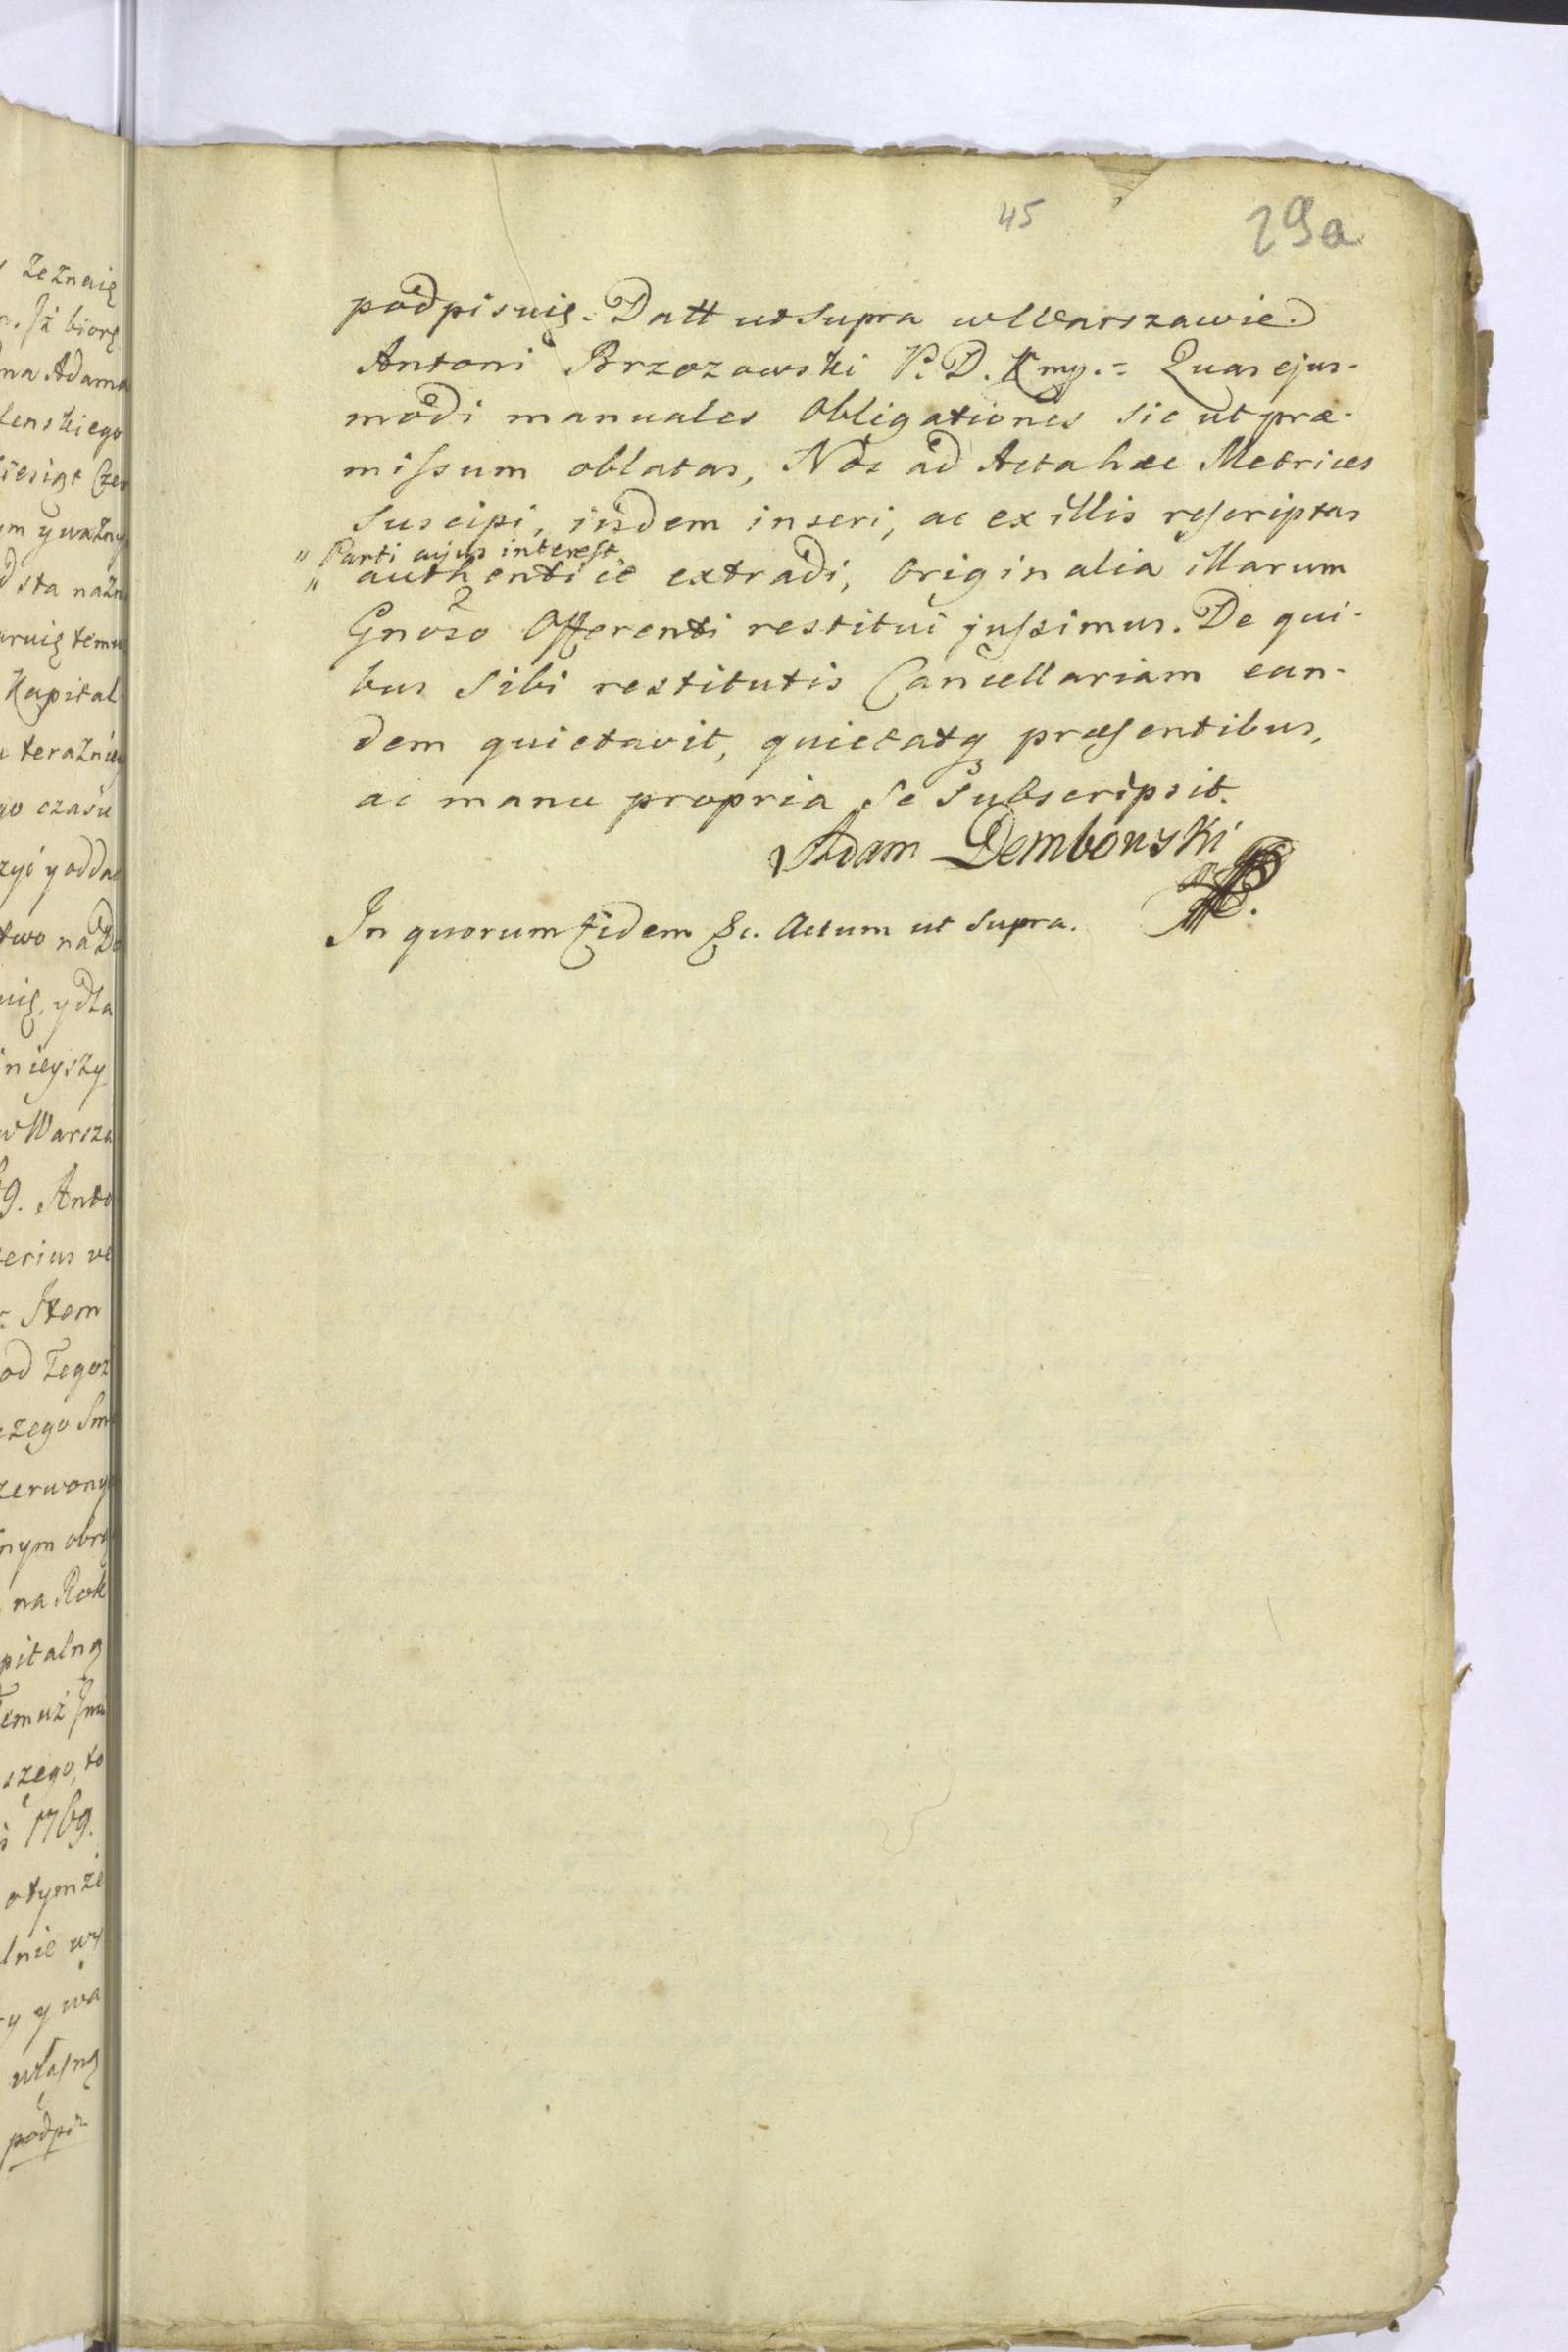 45
29a
podpisuię. Datt ut Supra w Warszawie
Antoni Brzozowski P. D. Kmg. = Quas ejus-
modi manuales Obligationes sic ut præ-
miſsum oblatas, Nos ad Acta hæc Metrices
Suscipi, iisdem inseri, ac ex illis reſcriptas
" Parti cujus intereſt
" authentice extradi, Originalia illarum
Gnoso Offerenti restitui juſsimus. De qui-
bus Sibi restitutis Cancellariam ean-
dem quietavit, quietatq præſentibus,
ac manu propria Se Subscripsit.
Adam Dembowski
In quorum fidem &c. Actum ut Supra.
zeznaię
Jż biorę
na Adama
lenskiego
ym y ważny
sta nazna
aruię temu
Kapital
terazniey
go czasu
y odda
two na Do
y dla
nieyszy
w Warsza
9. Anto
erius
= Item
od Tegoż
zego Sm
zerwony
nym obrą
na Rok
pitalną
Temuż Jmu
szego, to
1769.
otym ze
lnie wy
y y wa
własną
podpi-